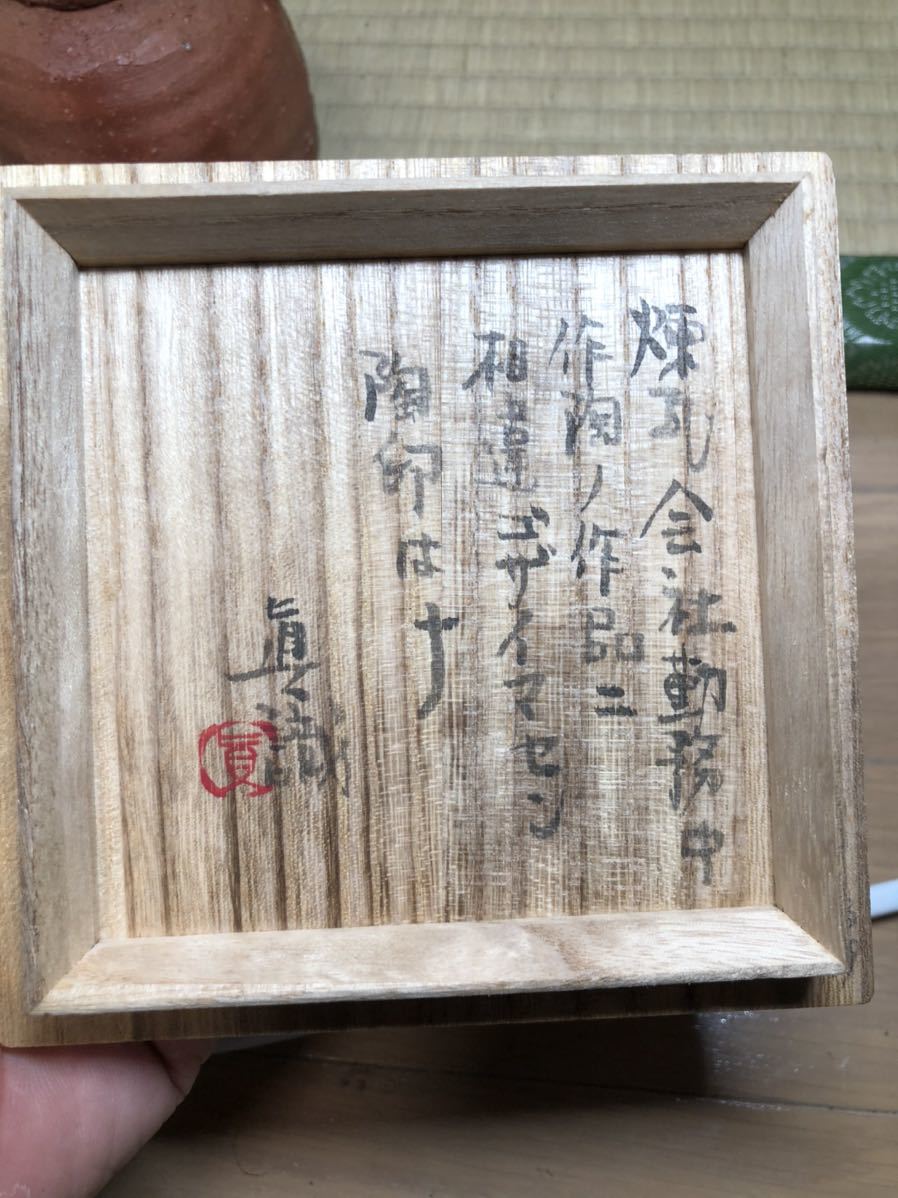 煉瓦会社勤務中
作陶ノ作品ニ
相違ゴザイマセン
陶印はナ
眞識
眞